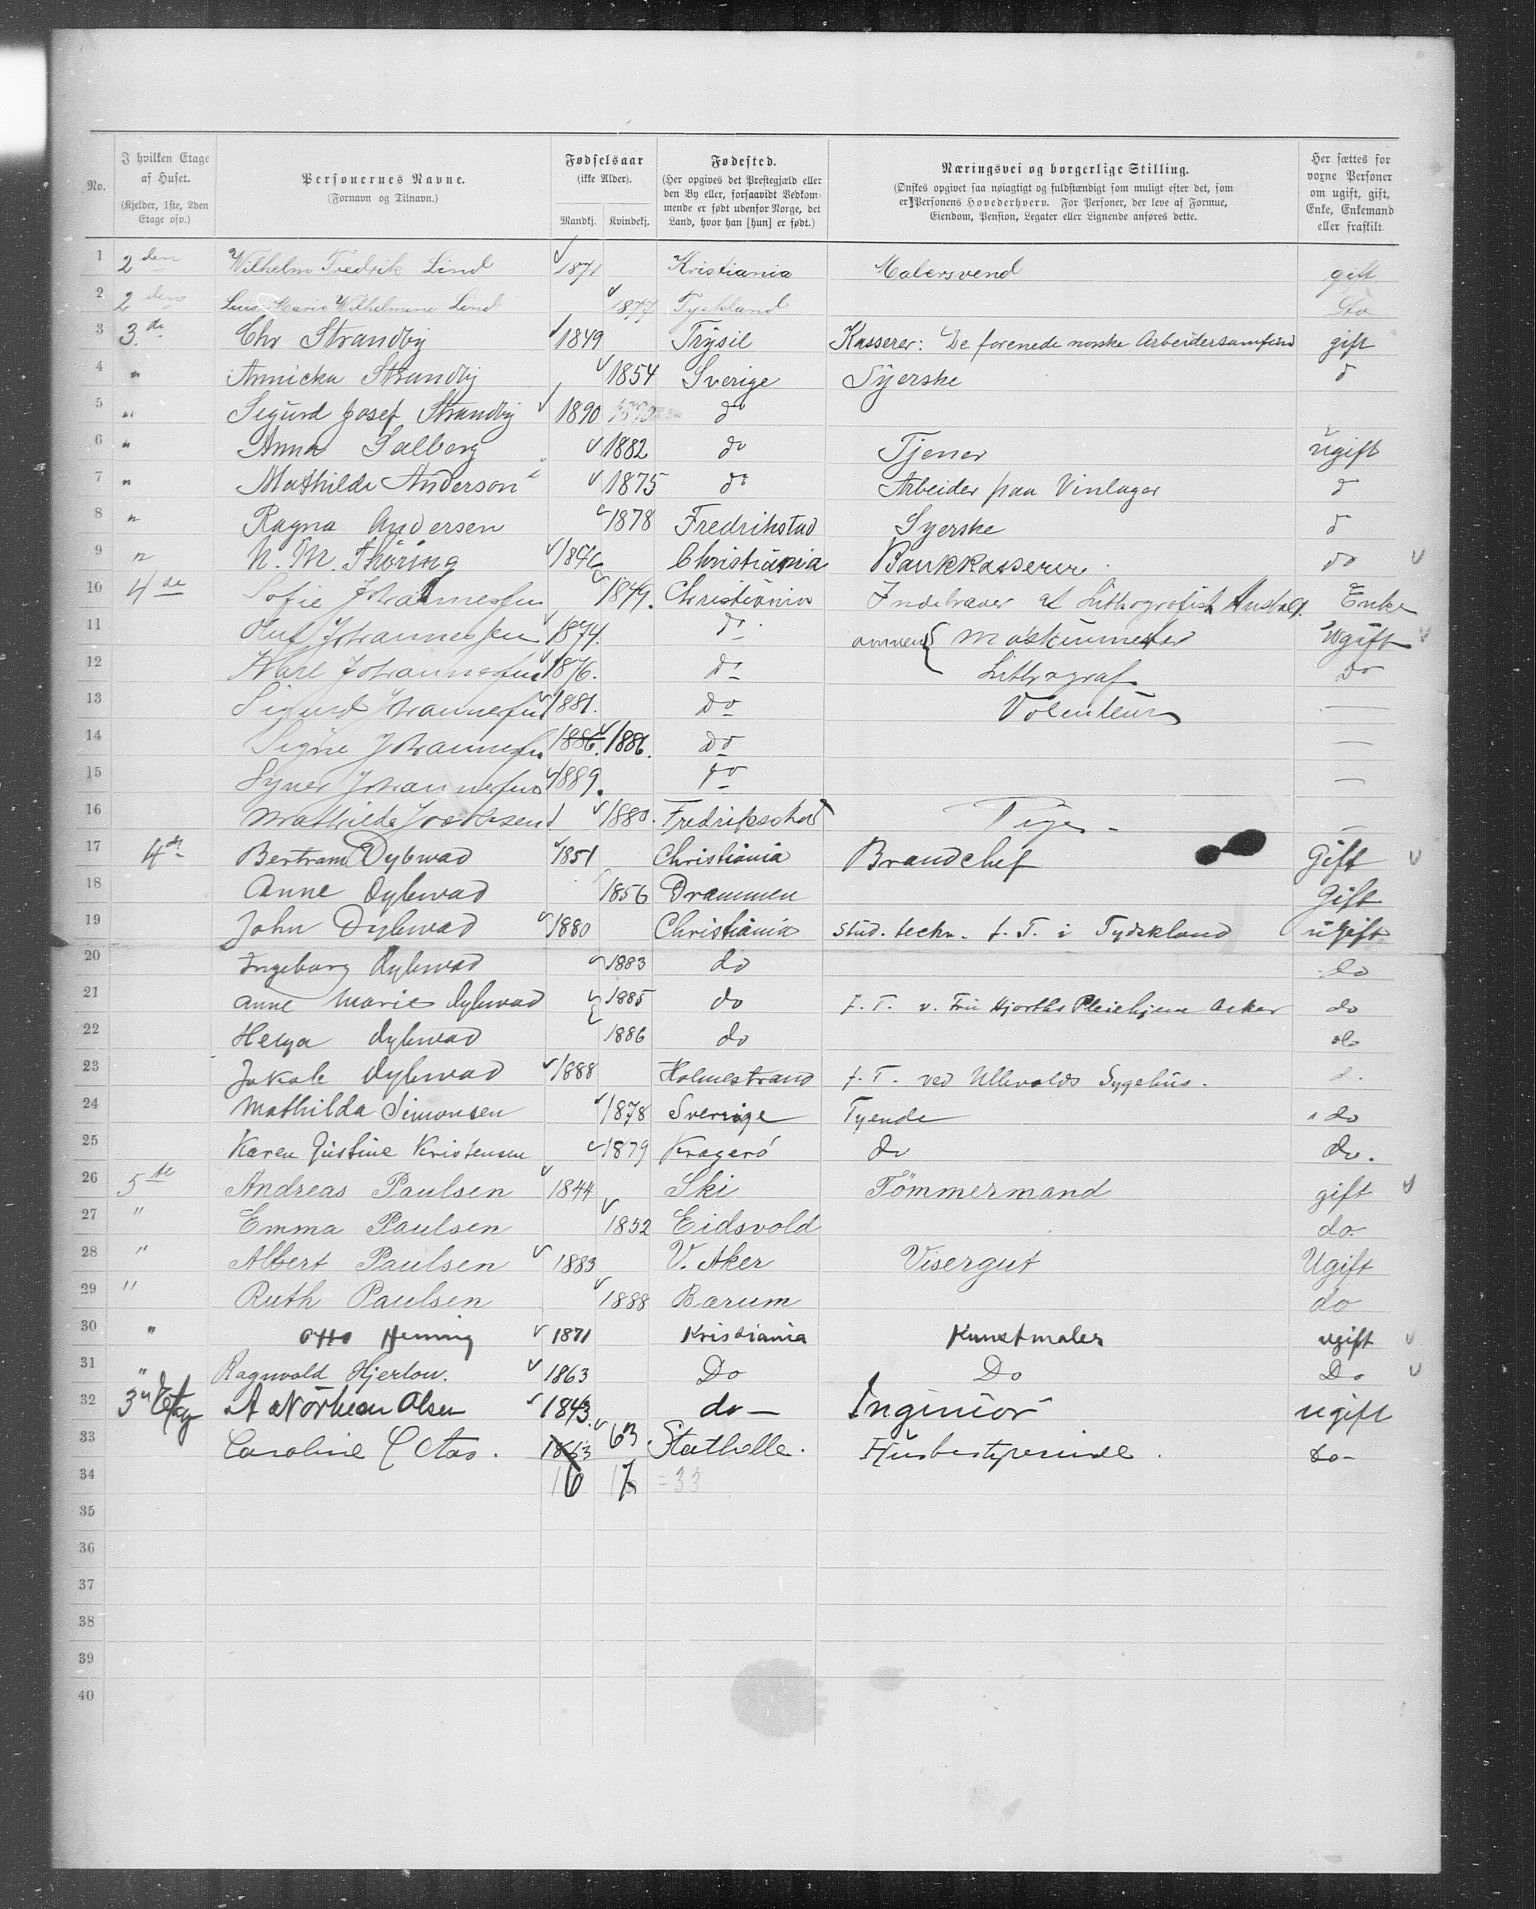 No.
I hvilken Etage af Huset. (Kjelder, 1ste, 2den Etage osv.)
Personernes Navne. (Fornavn og Tilnavn.)
Fødselsaar (ikke Alder). Mandkj. Kvindekj.
Fødested. (Her opgives det Prestegjæld eller den By eller, forsaavidt Vedkommende er født udenfor Norge, det Land, hvor han [hun] er født.)
Næringsvei og borgerlige Stilling. (Ønskes opgivet saa nøiagtigt og fuldstændigt som muligt efter det, som er Personens Hovederhverv. For Personer, der leve af Formue, Eiendom, Pension, Legater eller Lignende anføres dette.
Her sættes for voxne Personer om ugift, gift, Enke, Enkemand eller fraskilt.
1 2den Wilhelm Fredrik Lind 1871 Kristiania Malersvend gift
2 2den Luise Marie Wilhelmine Lind 1877 Tyskland Do
3 3.de Chr Strandby 1849 Trysil Kasserer: De forenede norske Arbeidersamfund gift
4 " Annicka Strandby 1854 Sverige Syerske d
5 " Sigurd Josef Strandby 1890 do
6 " Anna Salberg 1882 do Tjener ugift
7 " Mathilde Anderson 1875 do Arbeider paa Vinlager d
8 " Ragna Andersen 1878 Fredrikstad Syerske d
9 " N. M. Thøring 1846 Christiania Bankkasserer do
10 4de Sofie Johannessen 1849. Christiania Indehaver af Lithografisk Anstalt. Enke
11 Oluf Johannessen 1874. do Maskinmester Ugift
12 Karl Johannessen 1876. do Lithograf do
13 Sigurd Johannessen 1881. do Volentør —
14 Signe Johannessen 1886. 1886. do —
15 Syver Johannessen 1889. do —
16 Mathilde Jocobsen 1880. Fredriksstad Pige —
17 4de Bertram Dybwad 1851 Christiania Brandchef Gift
18 Anne Dybwad 1856 Drammen Gift
19 John Dybwad 1880 Christiania stud. techn. f. T. i Tydskland ugift
20 Ingeborg Dybwad 1883 do do
21 Anne Marie Dybwad 1885 do f. T. v. Fru Hjorths Pleiehjem Asker do
22 Helga Dybwad 1886 do do
23 Jakob Dybwad 1888 Holmestrand f. T. ved Ullevolds Sygehus. d.
24 Mathilda Simonsen 1878 Sverrige Tyende do
25 Karen Justine Kristensen 1879 Kragerö do do.
26 5te Andreas Paulsen 1844 Ski Tömmermand gift
27 " Emma Paulsen 1852 Eidsvold do.
28 " Albert Paulsen 1883 V. Aker Visergut Ugift
29 " Ruth Paulsen 1888 Barum do
30 " Otto Hennig 1871 Kristiania Kunstmaler ugift
31 " Ragnvald Hjerlow. 1863 Do Do Do
32 3die Etag A Nörbech Olsen 1843. do — Ingeniör ugift
33 Caroline C Aas. 1863 63 Stathelle. Husbestyrerinde. Do -
34 16 17 = 33
35
36
37
38
39
40